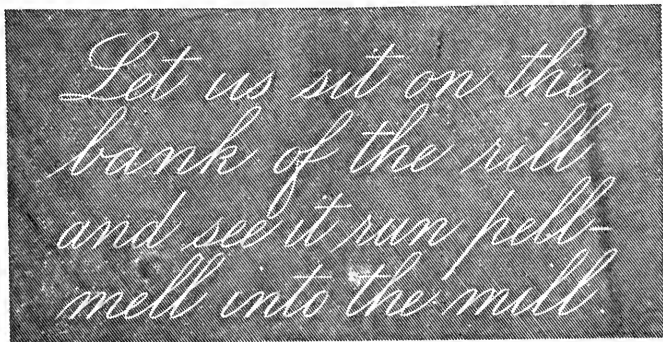 Let us sit on the
bank of the rill
and see it run pell-
mell into the mill.